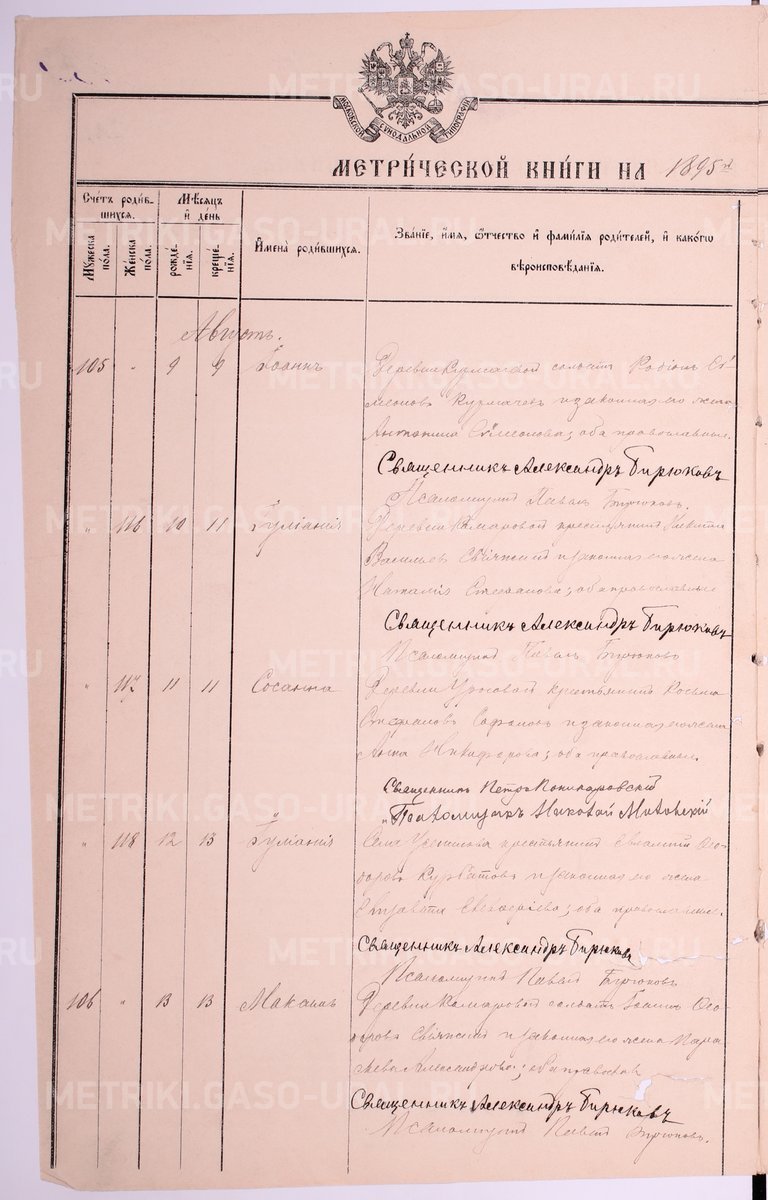 МОСКОВСКОЙ СИНОДАЛЬНОЙ ТИПОГРАФІИ
МЕТРИ́ЧЕСКОЙ КНИ́ГИ НА 1895й
Сче́тъ роди́в-
шихся.
Мѣ́сяцъ
и҆ де́нь
Мꙋ́жеска по́ла.
Же́нска по́ла.
рожде́-
нія.
креще́-
нія.
И҆мена̀ роди́вшихся.
Зва́ніе, и҆́мя, ѻ҆́тчество и҆ фами́лія роди́телей, и҆ како́гѡ
вѣроисповѣ́данія.
Августъ.
105 „ 9 9 Іоаннъ Деревни солдатъ Родіонъ Си-
меоновъ и законная его жена
Антонина Симеонова; оба православные.
Священникъ Александръ Бирюковъ
Псаломщикъ Павелъ Бирюковъ.
„ 116 10 11 Іуліанія Деревни Комаровой крестьянинъ Никита
Васильевъ и законная его жена
Наталія Стефанова; оба православные
Священникъ Александръ Бирюковъ
Псаломщикъ Павелъ Бирюковъ
„ 117 11 11 Сосанна Деревни крестьянинъ Косьма
Стефановъ и законная его жена
Анна Никифорова; оба православные.
Священникъ Петръ Пономаревскій
Псаломщикъ Николай
„ 118 12 13 Іуліанія Села крестьянинъ Ѳео-
доровъ Курбатовъ и законная его жена
Елисавета; оба православные.
Священникъ Александръ Бирюковъ
Псаломщикъ Павелъ Бирюковъ
106 „ 13 13 Деревни Комаровой солдатъ Іоаннъ Ѳео-
доровъ и законная его жена Пара-
скева Александрова; оба православн
Священникъ Александръ Бирюковъ
Псаломщикъ Павелъ Бирюковъ.
METRIKI.GASO-URAL.RU